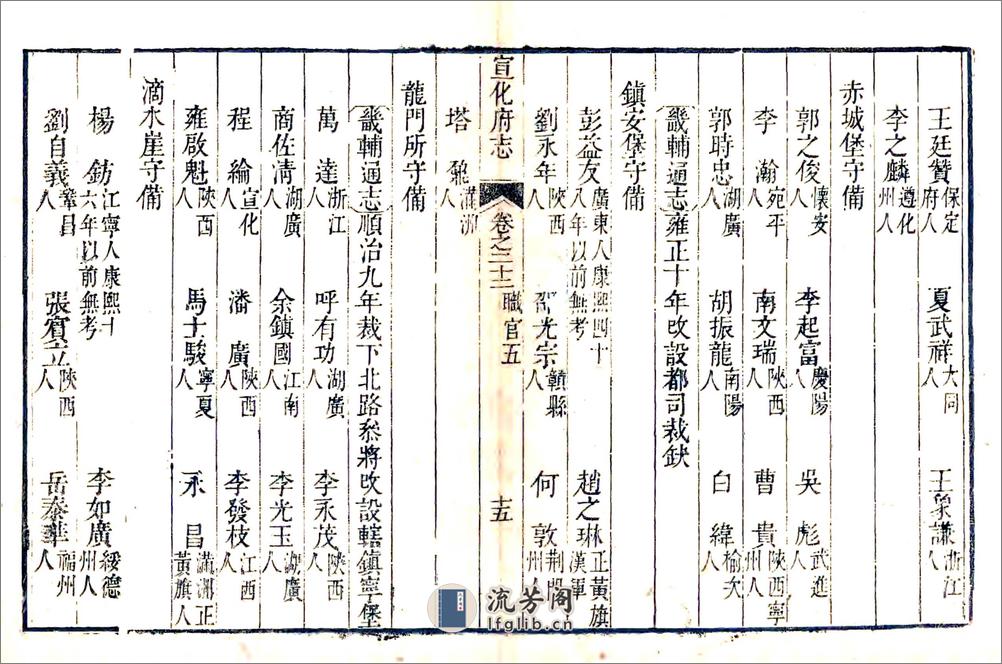 王廷贊保定府人 夏武祥大同人 王象謙浙江人
李之麟遵化州人
赤城堡守備
郭之俊懷安人 李起富慶陽人 吳彪武進人
李瀚宛平人 南文瑞陝西人 曹貴陝西寧州人
郭時忠湖廣人 胡振龍南陽人 白緯榆次人
畿輔通志雍正十年改設都司裁缺
鎮安堡守備
彭益友廣東人康熙四十八年以前無考 趙之琳正黃旗漢軍
劉永年陝西人 邵光宗贛縣人 何敦荆州人
宣化府志 卷之二十三 職官五 十五
塔 滿洲人
龍門所守備
畿輔通志順治九年裁下北路叅將改設轄鎮寧堡
萬達浙江人 呼有功湖廣人 李永茂陝西人
商佐清湖廣人 余鎮國江南人 李光玉湖廣人
程綸宣化人 潘廣陝西人 李發枝江西人
雍啟魁陝西人 馬士駿寧夏人 永昌滿洲正黃旗人
滴水崖守備
楊鈁江寧人康熙十六年以前無考 李如廣綏德州人
劉自義鞏昌人 張賓立陝西人 岳泰華福州人
流芳阁
lfglib.cn